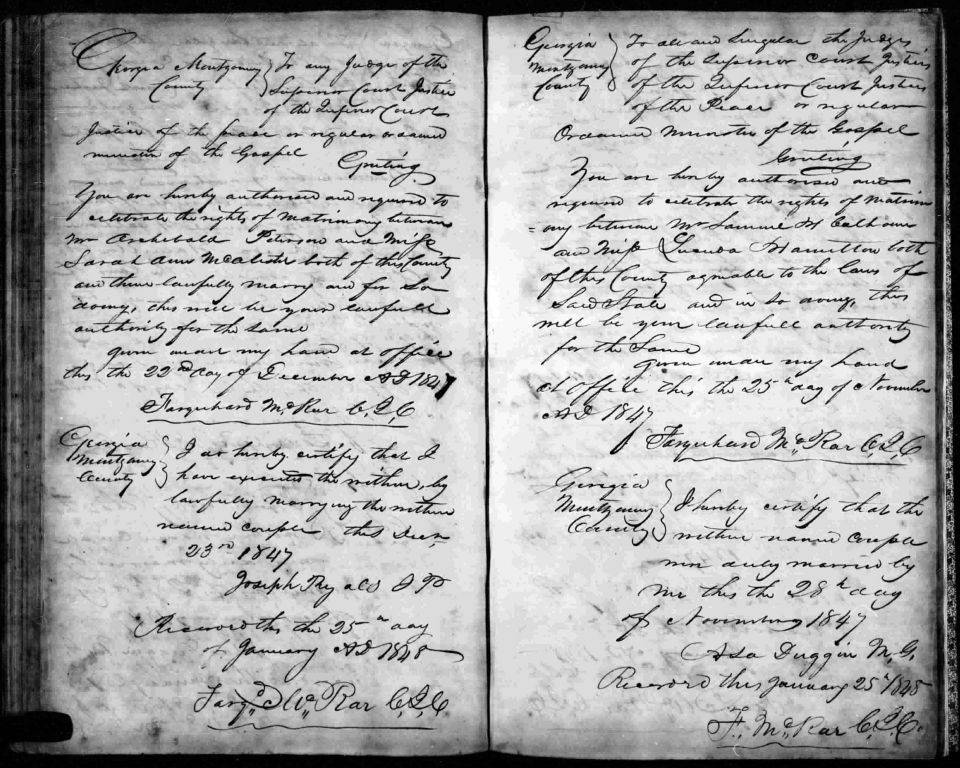 Georgia Montgomery County } To any Judge of the
Superior Court Justice
of the Inferior Court
Justice of the peace or regular ordained
minister of the Gospel
Greeting
You are hereby authorised and required to
celebrate the rights of Matrimony between
Mr Archibald Peterson and Miss
Sarah Ann McAlister both of this County
and them lawfully marry and for So
doing, this will be your lawfull
authority for the same
given under my hand at office
this the 22nd day of December AD 1847
Farquhard McRae C,I,C
Georgia Montgomery County } I do hereby certify that I
have executed the within, by
lawfully marrying the within
named couple this Decr
23rd 1847
Joseph Ryals J P
Record this the 25th day
of January AD 1848
Farqd McRae C,I,C
Georgia Montgomery County } To all and Singular the Judges
of the Superior Court Justices
of the Inferior Court Justices
of the Peace or regular
Ordained Minister of the Gospel
Greeting
You are hereby authorised and
required to celebrate the rights of Matrim
=ony between Mr Samuel H Calhoun
and Miss Hamilton both
of this County agreable to the laws of
Said State and in so doing, this
will be your lawfull authority
for the Same
given under my hand
at office this the 25th day of November
AD 1847
Farquhard McRae C,I,C
Georgia Montgomery County } I hereby certify that the
within named couple
were duly married by
me this the 28th day
of November 1847
Asa Duggin M,G.
Record this January 25th 1848
F, McRae C,I,C.